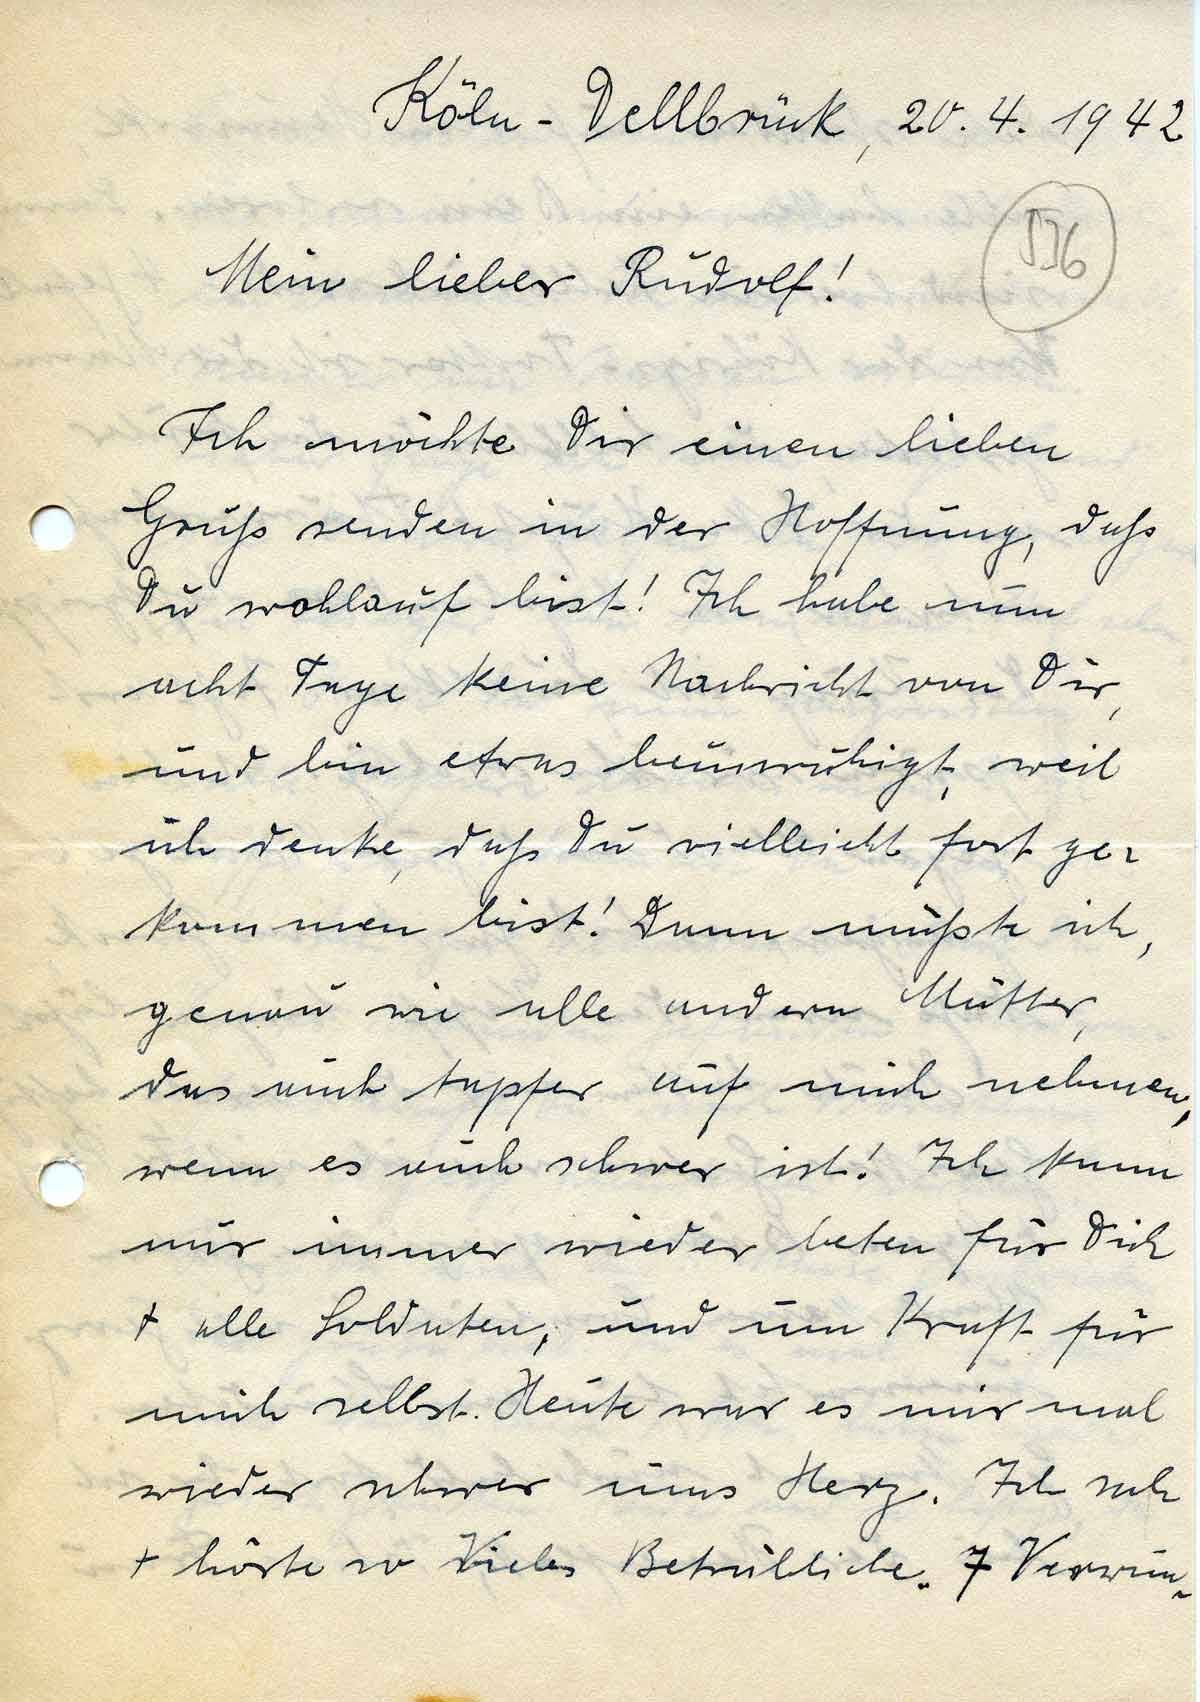 Köln-Dellbrück, 20. 4. 1942
536
Mein lieber Rudolf!
Ich möchte Dir einen lieben
Gruß senden in der Hoffnung, daß
Du wohlauf bist! Ich habe nun
acht Tage keine Nachricht von Dir,
und bin etwas beunruhigt, weil
ich denke, daß Du vielleicht fort ge-
kommen bist! Dann müßte ich,
genau wie alle andern Mütter,
das auch tapfer auf mich nehmen,
wenn es auch schwer ist! Ich kann
nur immer wieder beten für Dich
+ alle Soldaten, und um Kraft für
mich selbst. Heute war es mir mal
wieder schwer ums Herz. Ich sah
+ hörte so Vieles Betrübliche. 7 Verwun-